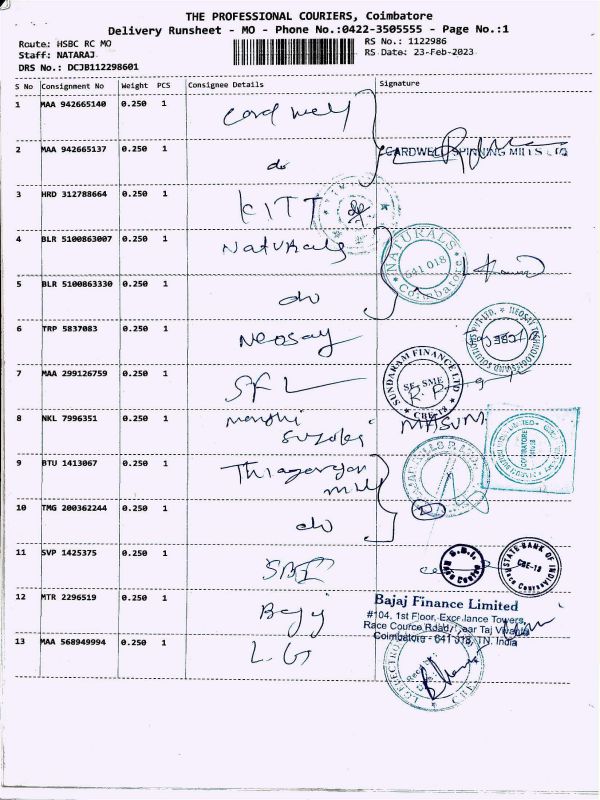 THE PROFESSIONAL COURIERS, Coimbatore
Delivery Runsheet - MO - Phone No.:0422-3505555 - Page No.:1
Route: HSBC RC MO
RS No.: 1122986
Staff: NATARAJ
RS Date: 23-Feb-2023
DRS No.: DCJB112298601
S No Consignment No Weight PCS Consignee Details Signature
1 MAA 942665140 0.250 1 Cardwell
2 MAA 942665137 0.250 1 do CARDWELL SPINNING MILLS LTD
3 HRD 312788664 0.250 1 KITT
4 BLR 5100863007 0.250 1 Naturals
NATURALS
641 018
Coimbatore
5 BLR 5100863330 0.250 1 do
6 TRP 5837083 0.250 1 Neosay
7 MAA 299126759 0.250 1 SFL
SUNDARAM FINANCE LTD
SE. SME
CBE-18
8 NKL 7996351 0.250 1 Maruthi Suzuki MASUM
9 BTU 1413067 0.250 1 Thiagarajan
mill
10 TMG 200362244 0.250 1 do
11 SVP 1425375 0.250 1 SBI
S.B.I.
Race Course
STATE BANK OF INDIA
CBE-18
Race Course
12 MTR 2296519 0.250 1 Bajaj
Bajaj Finance Limited
#104, 1st Floor, Excellance Towers,
Race Cource Road, Near Taj Vivanta
Coimbatore - 641 018, TN. India
13 MAA 568949994 0.250 1 L.G